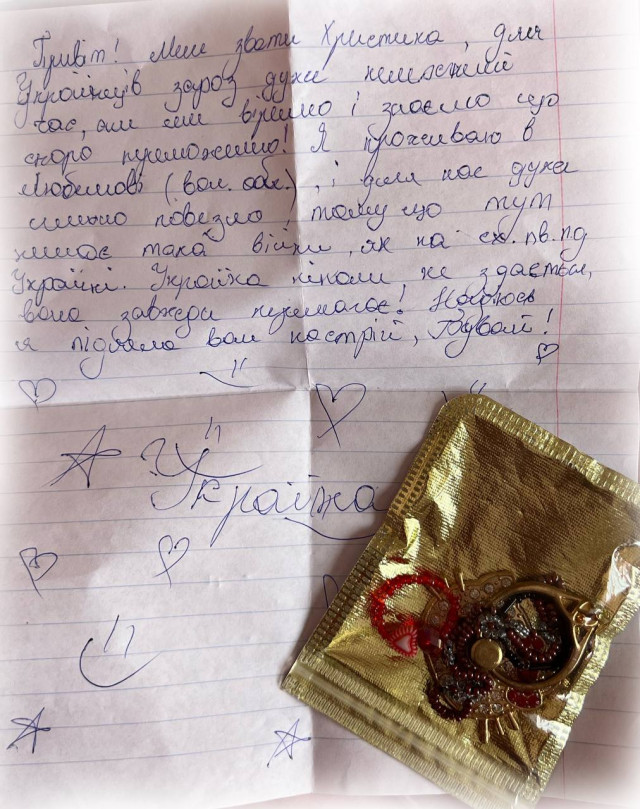 Привіт! Мене звати Христина, для
Українців зараз дуже нелегкий
час, але ми віримо і знаємо що
скоро переможемо! Я проживаю в
Любомлі (вол. обл.), і нас дуже
сильно повезло тому що тут
немає такої війни, як на сх. пв. пд
Україні. Україна ніколи не здається,
вона завжди перемагає! Надіюсь
я підняла вам настрій, Бувай!
Україна